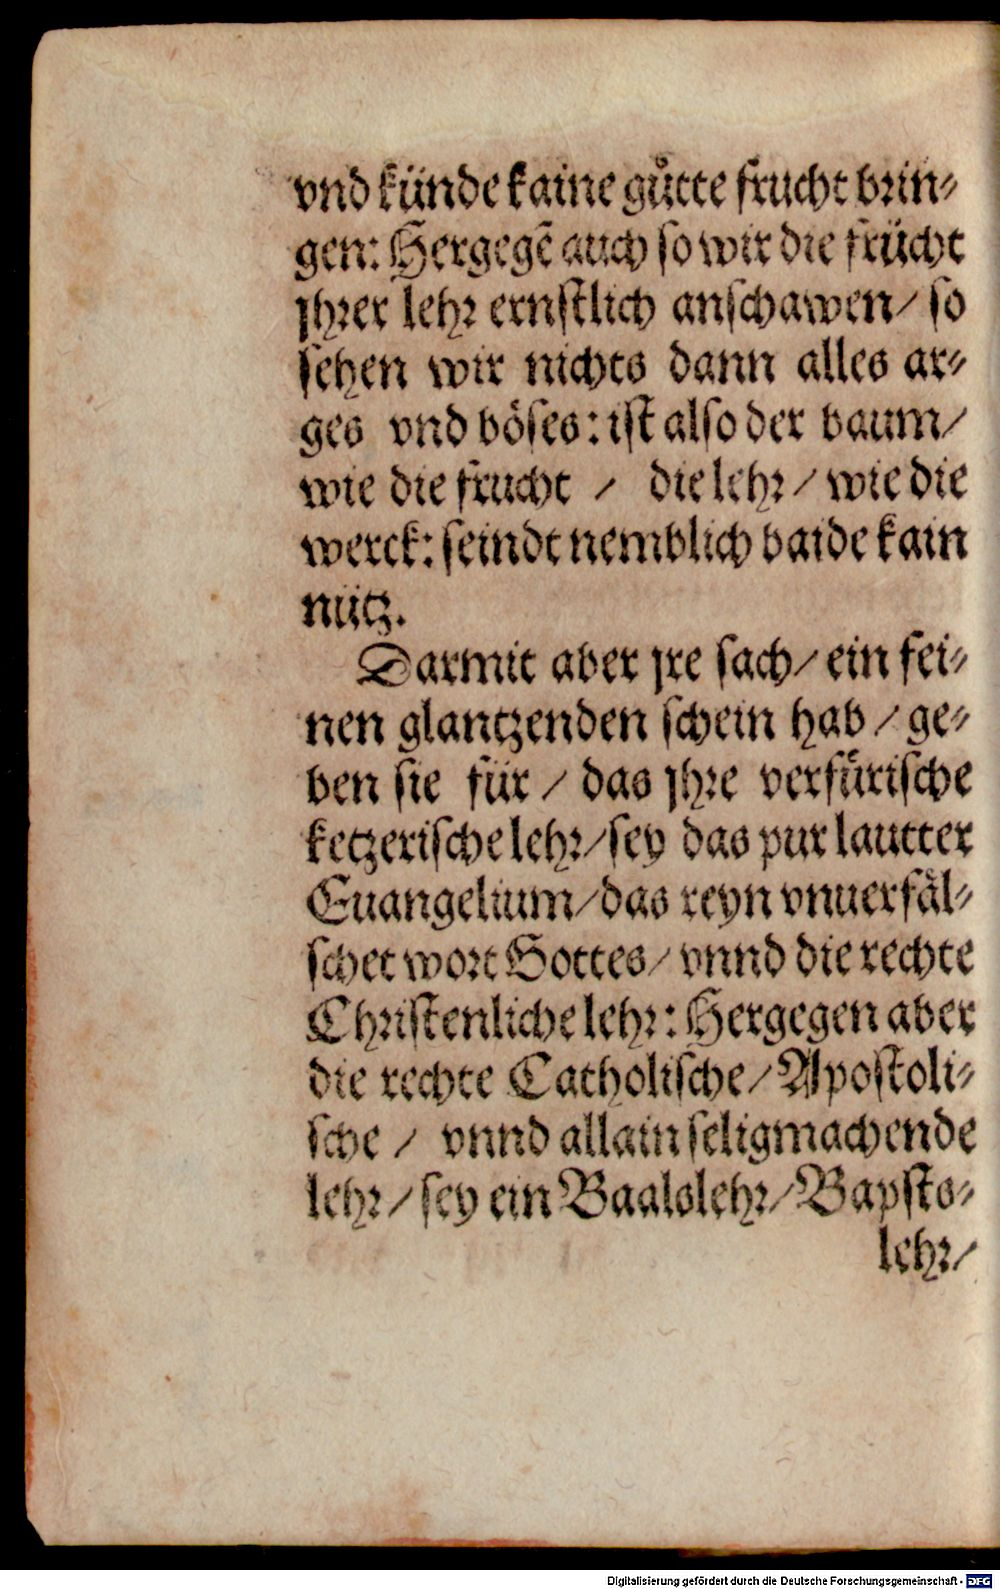 vnd künde kaine gůtte frucht brin⸗
gen: Hergegẽ auch so wir die frücht
jhrer lehr ernstlich anschawen/ so
sehen wir nichts dann alles ar⸗
ges vnd böses: ist also der baum/
wie die frucht / die lehr/ wie die
werck: seindt nemblich baide kain
nütz.
Darmit aber jre sach/ ein fei⸗
nen glantzenden schein hab/ ge⸗
ben sie für / das jhre verfürische
ketzerische lehr/sey das pur lautter
Euangelium/das reyn vnuerfäl⸗
schet wort Gottes/ vnnd die rechte
Christenliche lehr: Hergegen aber
die rechte Catholische/ Apostoli⸗
sche / vnnd allain seligmachende
lehr/ sey ein Baalslehr/ Bapsts⸗
lehr/
Digitalisierung gefördert durch die Deutsche Forschungsgemeinschaft - DFG